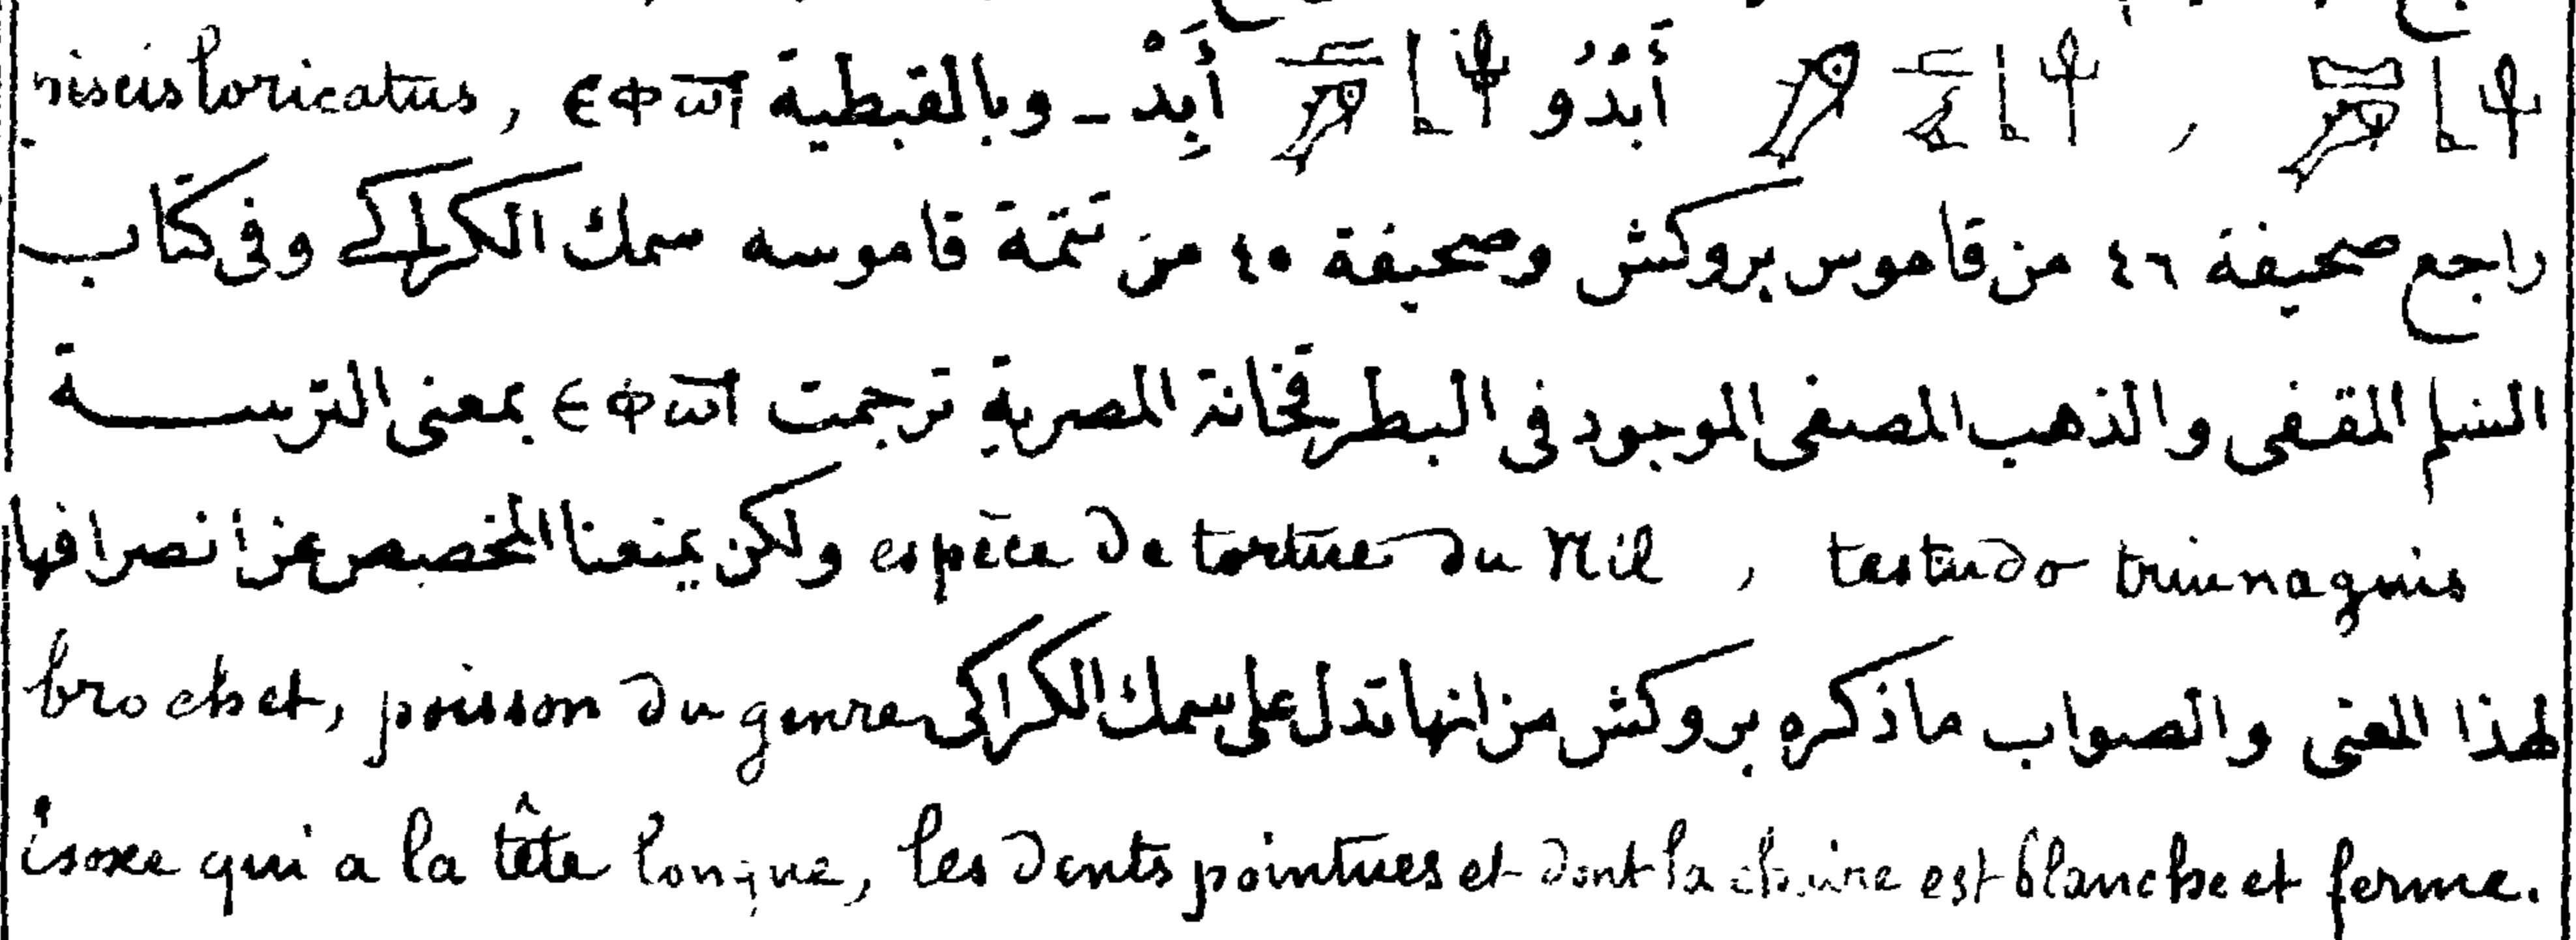 , أَبْدُو أَبِدْ ـ وبالقبطية ⲉⲫⲱⲧ piscis loricatus,
راجع صحيفة ٤٦ من قاموس بروكش وصحيفة ٤٥ من تتمة قاموسه سمك الكراكى وفى كتاب
السلم المقفى والذهب المصفى الموجود فى البطرقخانة المصرية ترجمت ⲉⲫⲱⲧ بمعنى الترسة
testudo triunaguis , espèce de tortue du Nil ولكن يمنعنا المخصص عن انصرافها
لهذا المعنى والصواب ما ذكره بروكش من انها تدل على سمك الكراكى brochet, poisson du genre
ésoxe qui a la tête longue, les dents pointues et dont la chaire est blanche et ferme.